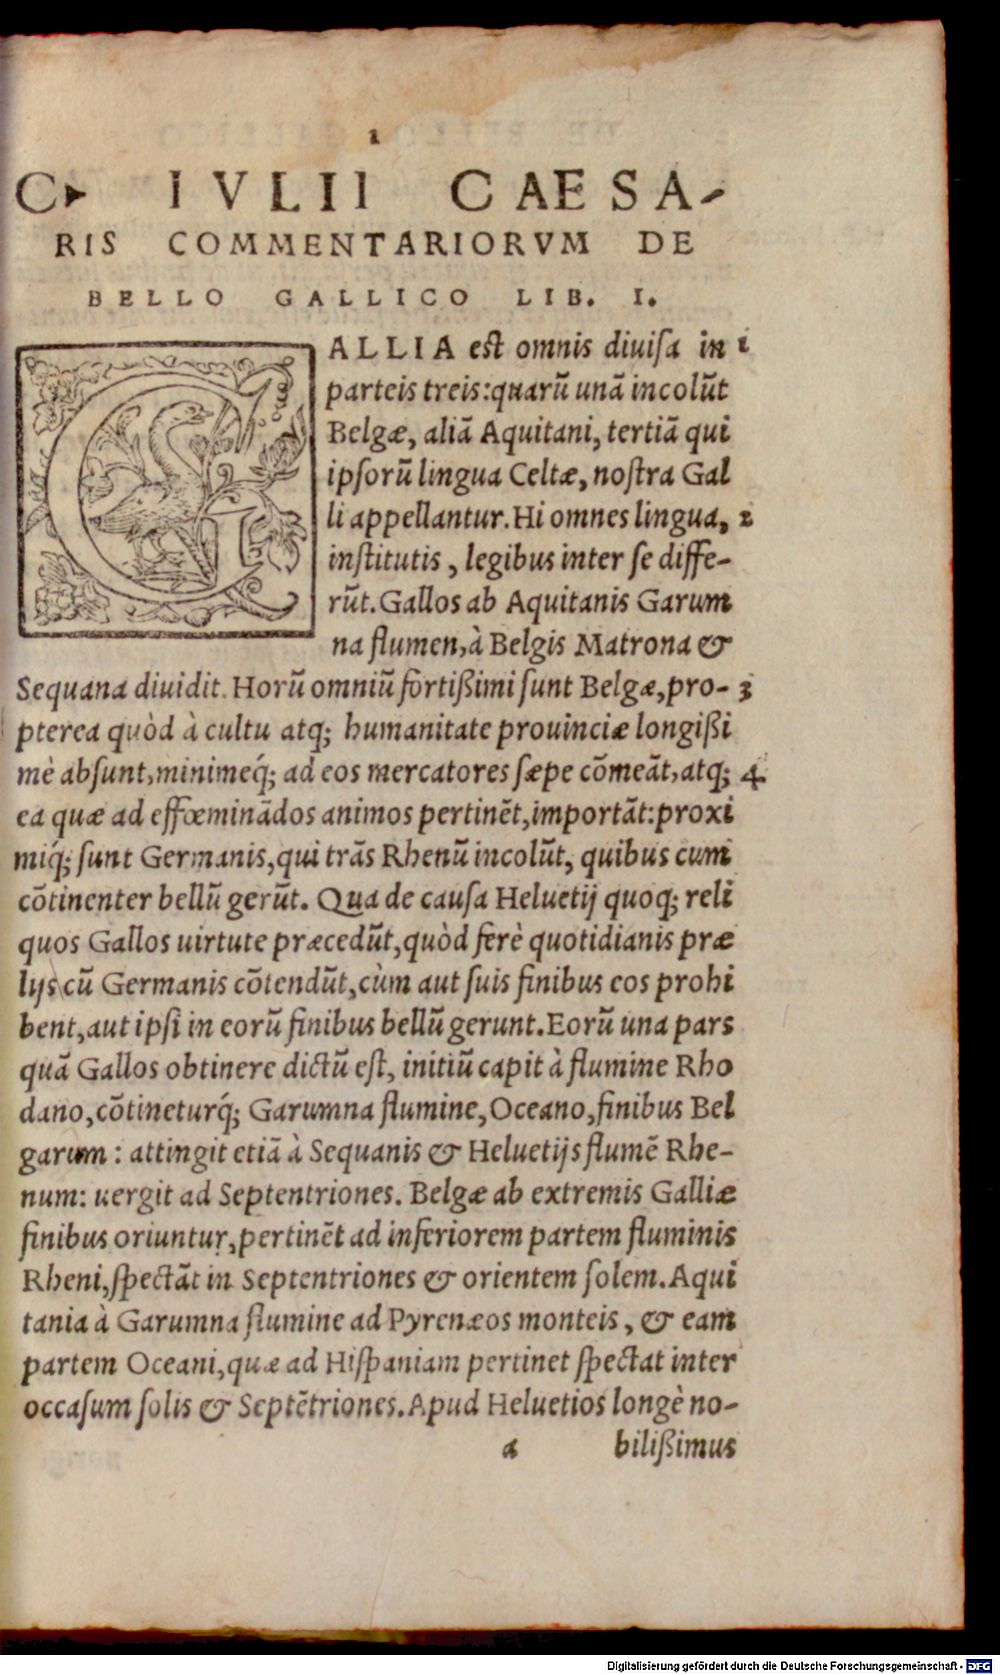 1
C. IVLII CAESA-
RIS COMMENTARIORVM DE
BELLO GALLICO LIB. I.
GALLIA est omnis diuisa in 1
parteis treis: quarū unā incolūt
Belgæ, aliā Aquitani, tertiā qui
ipsorū lingua Celtæ, nostra Gal
li appellantur. Hi omnes lingua, 2
institutis, legibus inter se diffe-
rūt. Gallos ab Aquitanis Garum
na flumen, à Belgis Matrona &
Sequana diuidit. Horū omniū fortißimi sunt Belgæ, pro- 3
pterea quòd à cultu atq; humanitate prouinciæ longißi
mè absunt, minimeq́; ad eos mercatores sæpe cōmeāt, atq; 4
ea quæ ad effœminādos animos pertinēt, importāt: proxi
miq́; sunt Germanis, qui trās Rhenū incolūt, quibus cum
cōtinenter bellū gerūt. Qua de causa Heluetij quoq; reli
quos Gallos uirtute præcedūt, quòd ferè quotidianis præ
lijs cū Germanis cōtendūt, cùm aut suis finibus eos prohi
bent, aut ipsi in eorū finibus bellū gerunt. Eorū una pars
quā Gallos obtinere dictū est, initiū capit à flumine Rho
dano, cōtineturq́; Garumna flumine, Oceano, finibus Bel
garum: attingit etiā à Sequanis & Heluetijs flumē Rhe-
num: uergit ad Septentriones. Belgæ ab extremis Galliæ
finibus oriuntur, pertinēt ad inferiorem partem fluminis
Rheni, spectāt in Septentriones & orientem solem. Aqui
tania à Garumna flumine ad Pyrenæos monteis, & eam
partem Oceani, quæ ad Hispaniam pertinet spectat inter
occasum solis & Septētriones. Apud Heluetios longè no-
a bilißimus
Digitalisierung gefördert durch die Deutsche Forschungsgemeinschaft - DFG